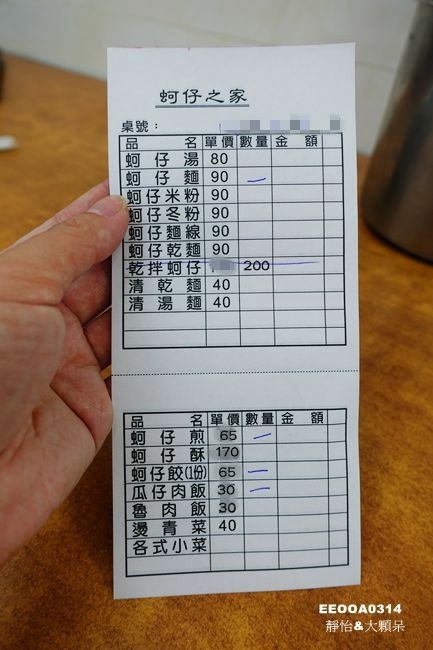 蚵仔之家
桌號：
品名 單價 數量 金額
蚵仔湯 80
蚵仔麵 90
蚵仔米粉 90
蚵仔冬粉 90
蚵仔麵線 90
蚵仔乾麵 90
乾拌蚵仔 200
清乾麵 40
清湯麵 40
品名 單價 數量 金額
蚵仔煎 65
蚵仔酥 170
蚵仔餃(1份) 65
瓜仔肉飯 30
魯肉飯 30
燙青菜 40
各式小菜
EEOOA0314
靜怡&大顆呆